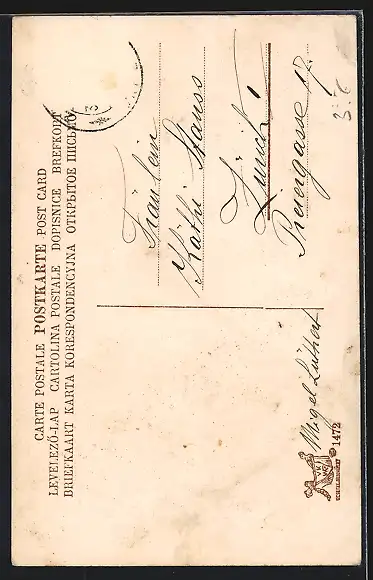 CARTE POSTALE POSTKARTE POST CARD
LEVELEZŐ-LAP CARTOLINA POSTALE DOPISNICE BREFKORT
BRIEFKAART KARTA KORESPONDENCYJNA ОТКРЫТОЕ ПИСЬМО
Fräulein
Käthi Strauss
Zürich 1
Predigergasse 17.
Migel Luthert
1472